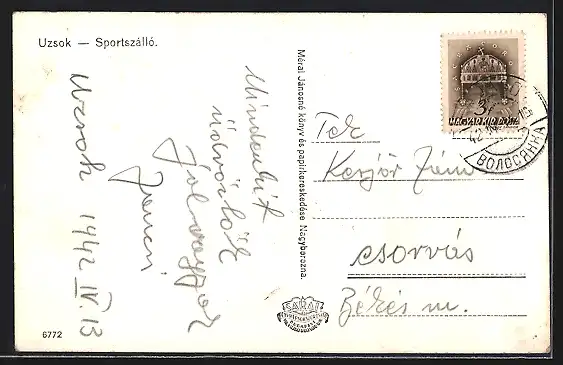 Uzsok — Sportszálló.
Uzsok 1942 IV. 13
Mindenkit
üdvözlök
Jól vagyok
Jancsi
Mérai Jánosné könyv és papirkereskedése Nagyberezna.
3f
MAGYAR KIR. POSTA
42
ВОЛОСЯНКА
Tek
János
Csorvás
Békés m.
6772